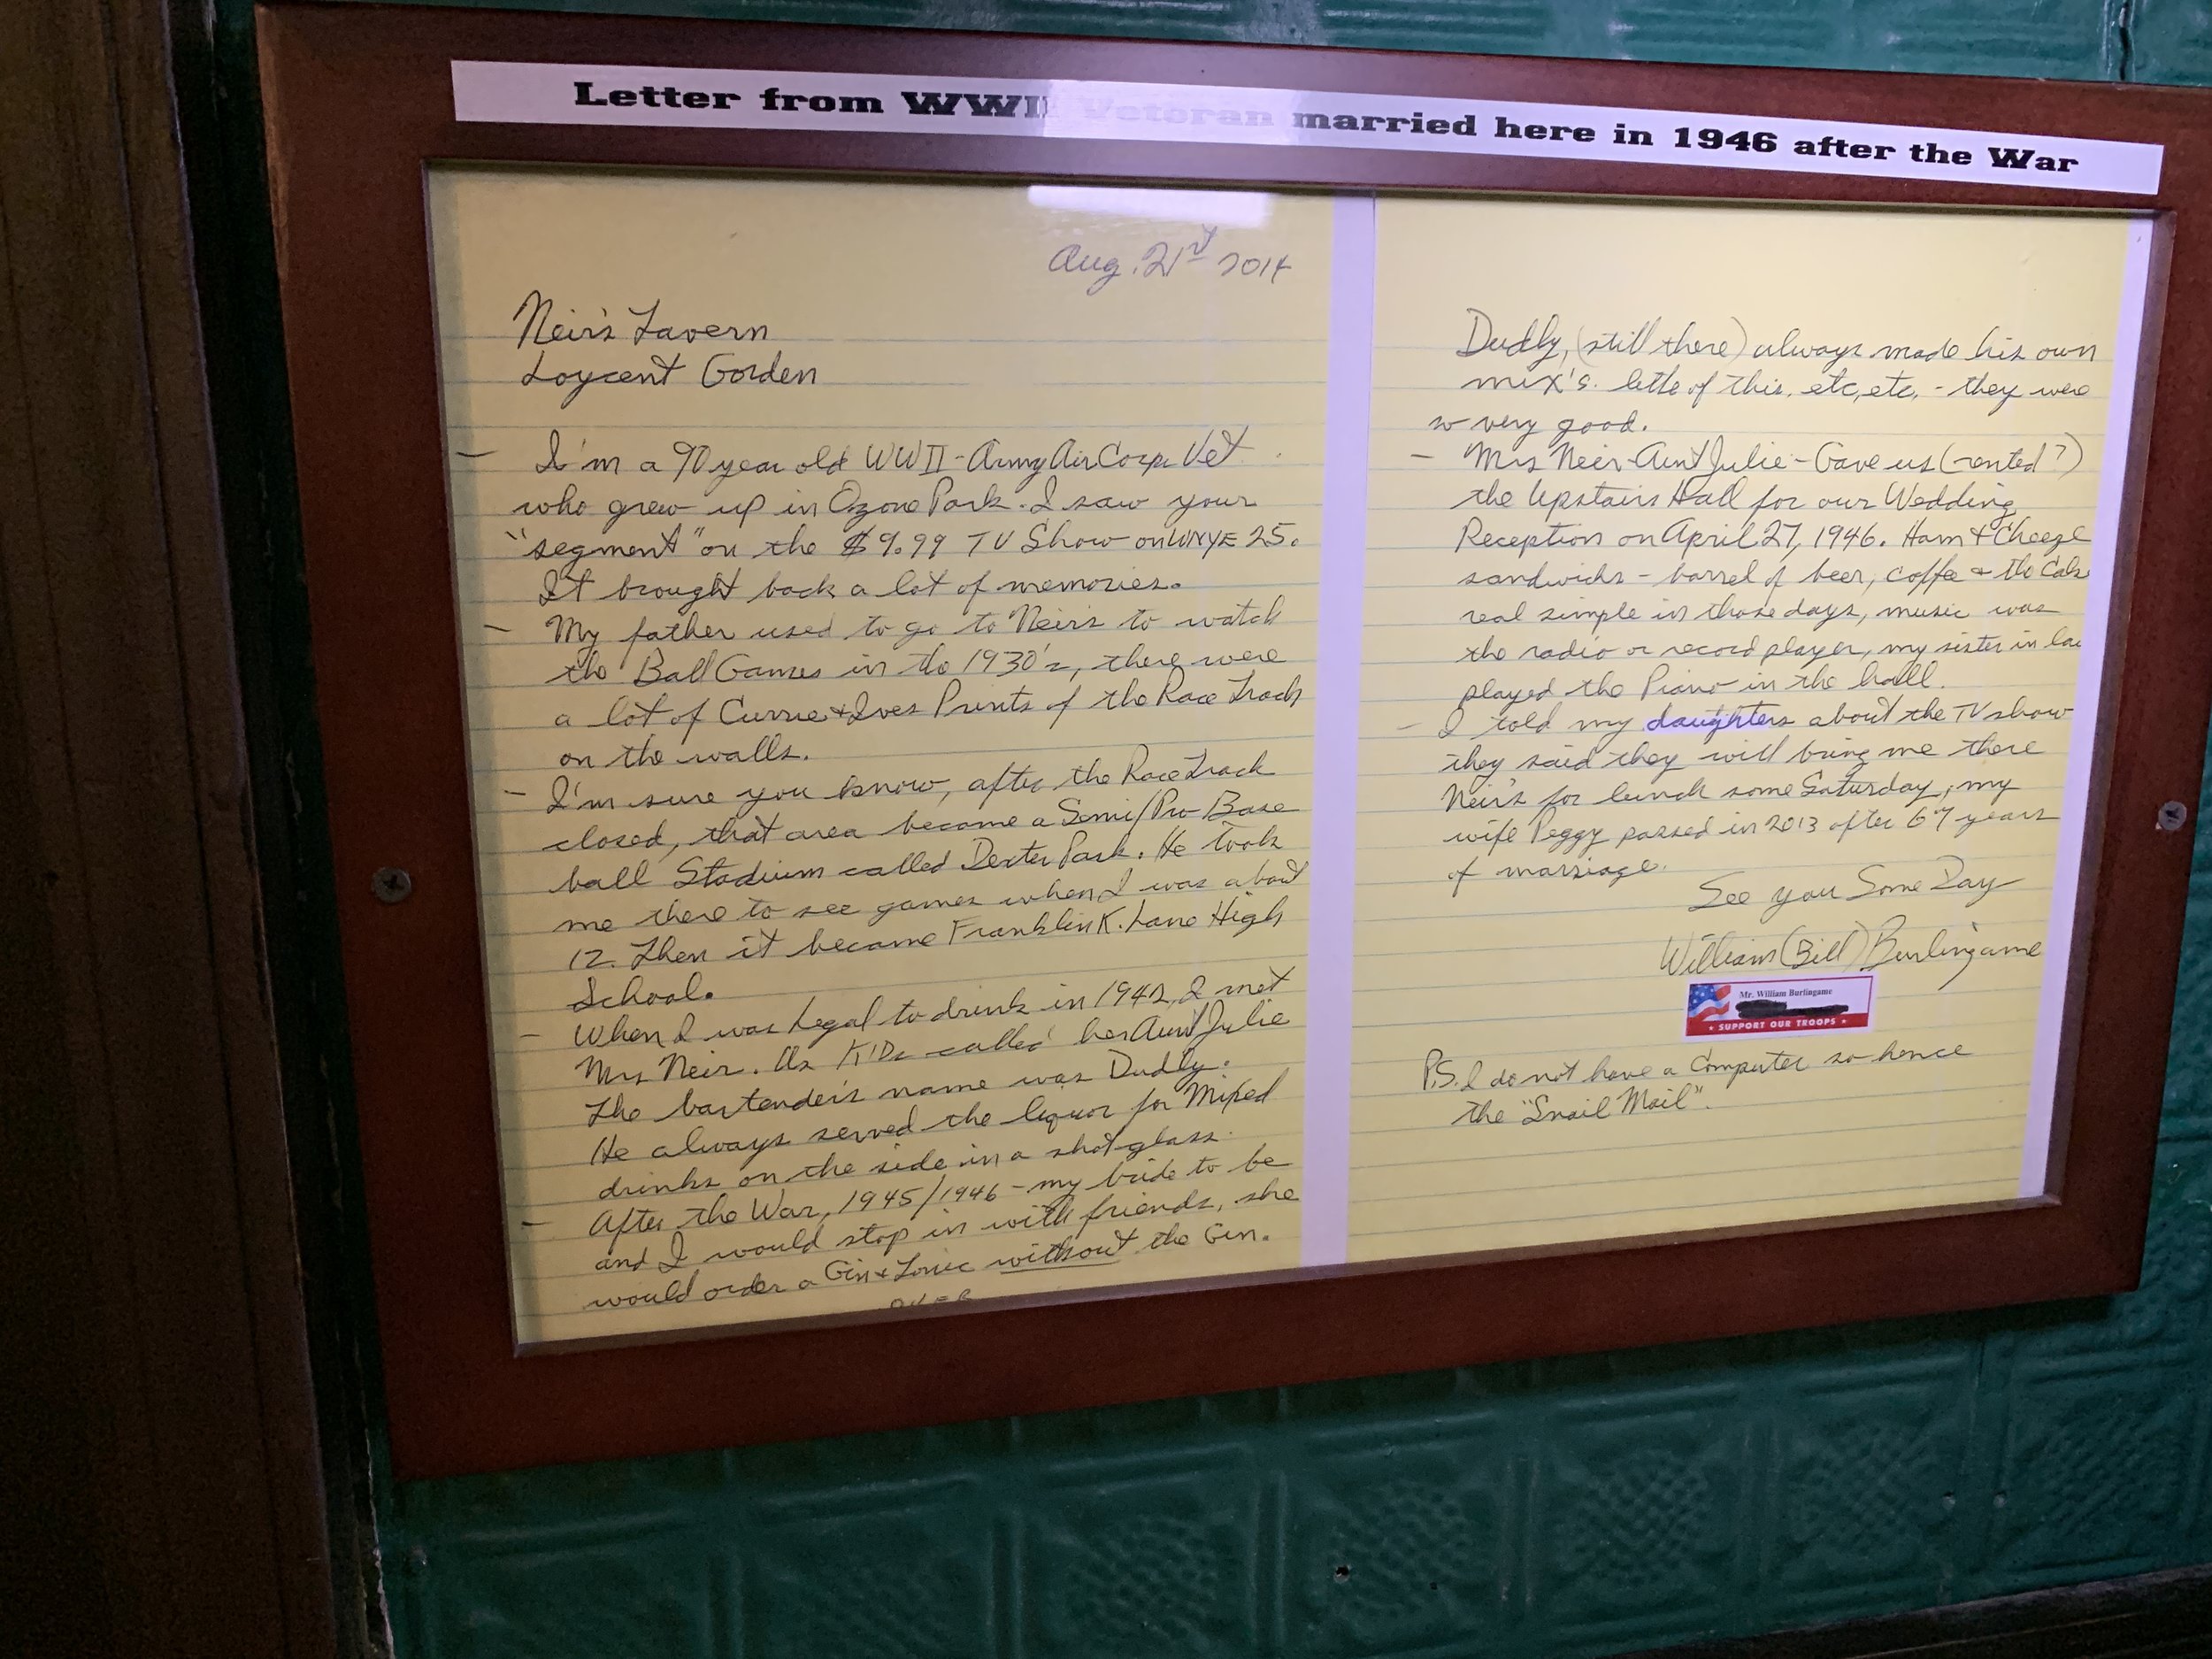 Letter from WWII Veteran married here in 1946 after the War
Aug. 21st 2014
Neir's Tavern
Loycent Gorden
- I'm a 90 year old WWII - Army Air Corp Vet
who grew up in Ozone Park. I saw your
"segment" on the $9.99 TV Show on WNYE 25.
It brought back a lot of memories.
- My father used to go to Neir's to watch
the Ball Games in the 1930's, there were
a lot of Currie & Ives Prints of the Race Track
on the walls.
- I'm sure you know, after the Race Track
closed, that area became a Semi/Pro Base
ball Stadium called Dexter Park. He took
me there to see games when I was about
12. Then it became Franklin K. Lane High
School.
- When I was Legal to drink in 1942, I met
Mrs Neir. Us KIDs called her Aunt Julie
The bartender's name was Dudly.
He always served the liquor for Mixed
drinks on the side in a shot-glass.
- After the War, 1945/1946 - my bride to be
and I would stop in with friends, she
would order a Gin & Tonic without the Gin.
OVER
Dudly, (still there) always made his own
mix's. little of this, etc, etc, - they were
so very good.
- Mrs Neir - Aunt Julie - Gave us (rented?)
the Upstairs Hall for our Wedding
Reception on April 27, 1946. Ham & Cheese
sandwichs - barrel of beer, coffee & the Cake
real simple in those days, music was
the radio or record player, my sister in law
played the Piano in the hall.
- I told my daughters about the TV show
they said they will bring me there
Neir's for lunch some Saturday, my
wife Peggy passed in 2013 after 67 years
of marriage.
See you Some Day
William (Bill) Burlingame
Mr. William Burlingame
★ SUPPORT OUR TROOPS ★
P.S. I do not have a Computer so hence
the "Snail Mail".